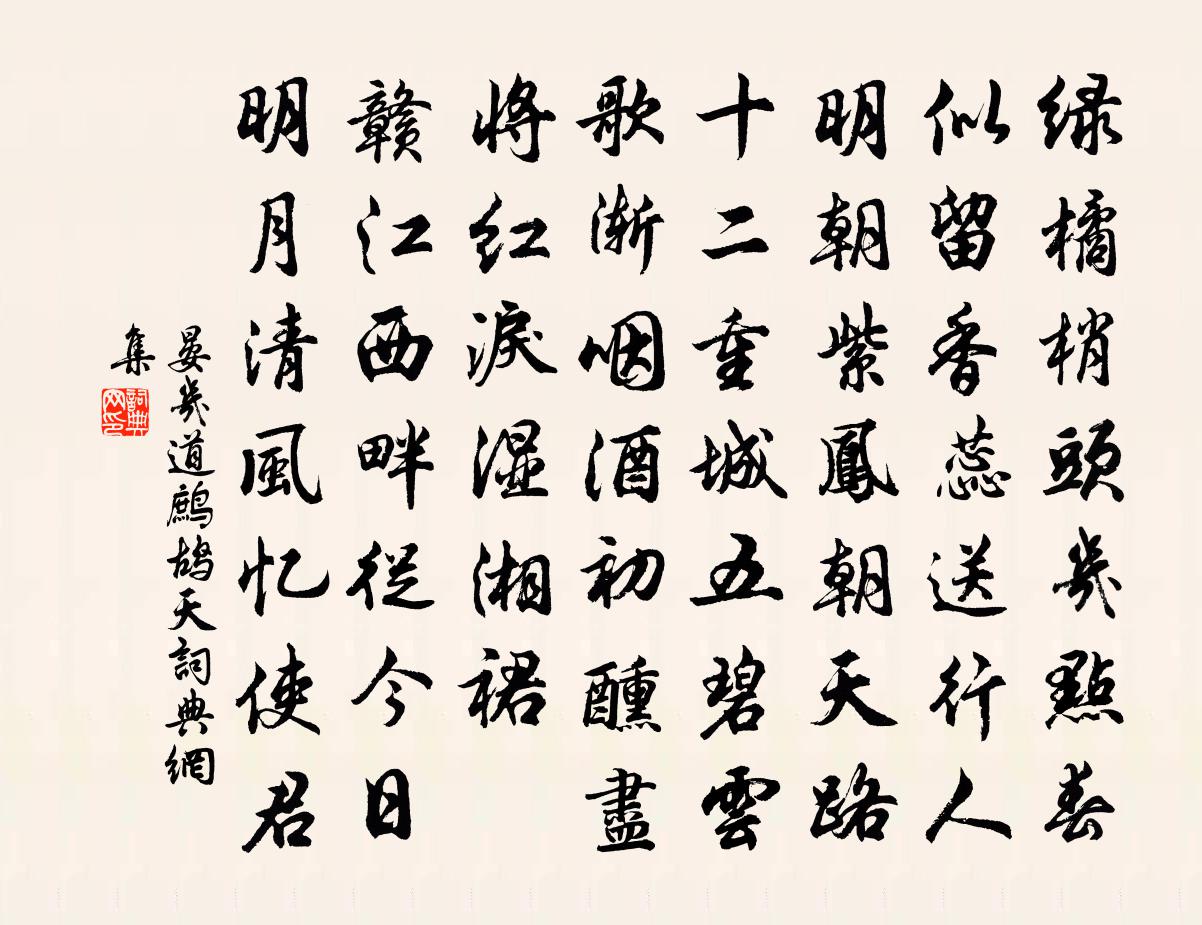 绿橘梢頭幾點春
似留香蕊送行人
明朝紫鳳朝天路
十二重城五碧雲
歌渐咽酒初醺盡
將红淚湿湘裙
赣江西畔從今日
明月清風忆使君
晏幾道鷓鴣天詞典網
集
詞典
网印